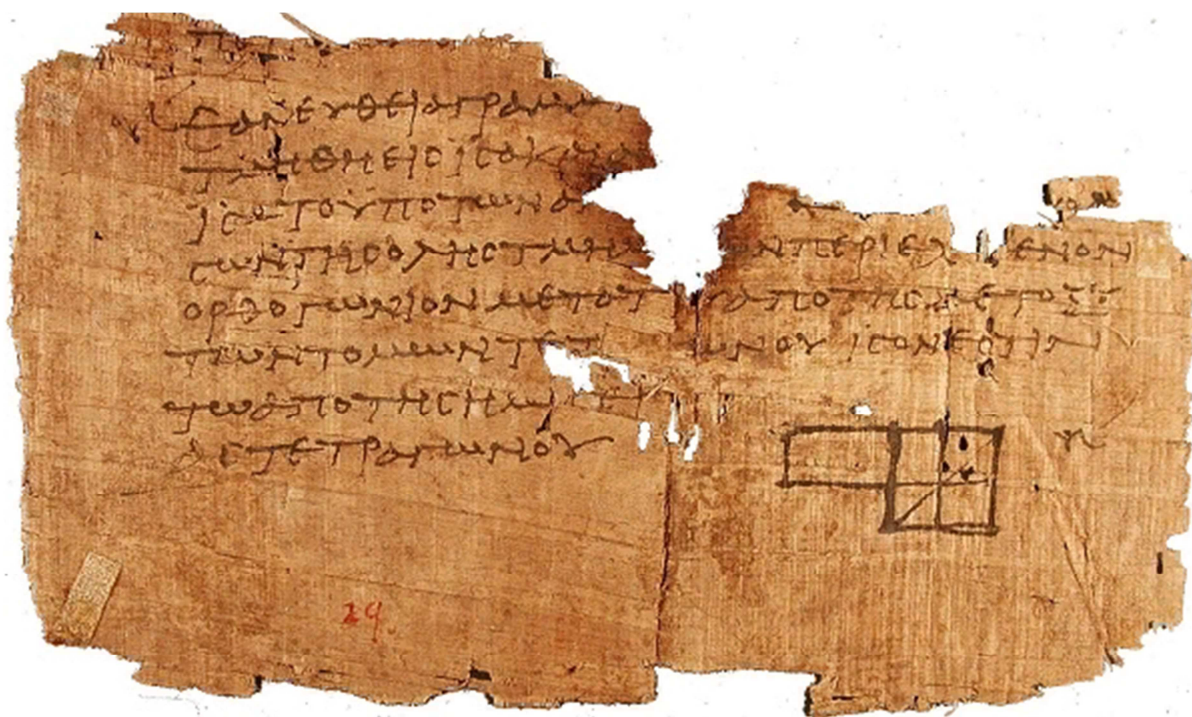 ΕΑΝ ΕΥΘΕΙΑ ΓΡΑΜΜ
ΤΜΗΘΗ ΕΙϹ ΙϹΑ Κ
ΙϹΑ ΤΟ ΥΠΟ ΤΩΝ Α
ϹΩΝ ΤΗϹ ΟΛΗϹ ΤΜΗΜ ΩΝ ΠΕΡΙΕΧ ΕΝΟΝ
ΟΡΘΟΓΩΝΙΟΝ ΜΕΤΑ Τ ΑΠΟ ΤΗϹ ΜΕΤΟΞΥ
ΤΩΝ ΤΟΜΩΝ ΤΕΤ ΩΝΟΥ ΙϹΟΝ ΕϹΤΙΝ
ΤΩ ΑΠΟ ΤΗϹ ΗΜΙϹΕΙ
ΑϹ ΤΕΤΡΑΓΩΝΟΥ
29.